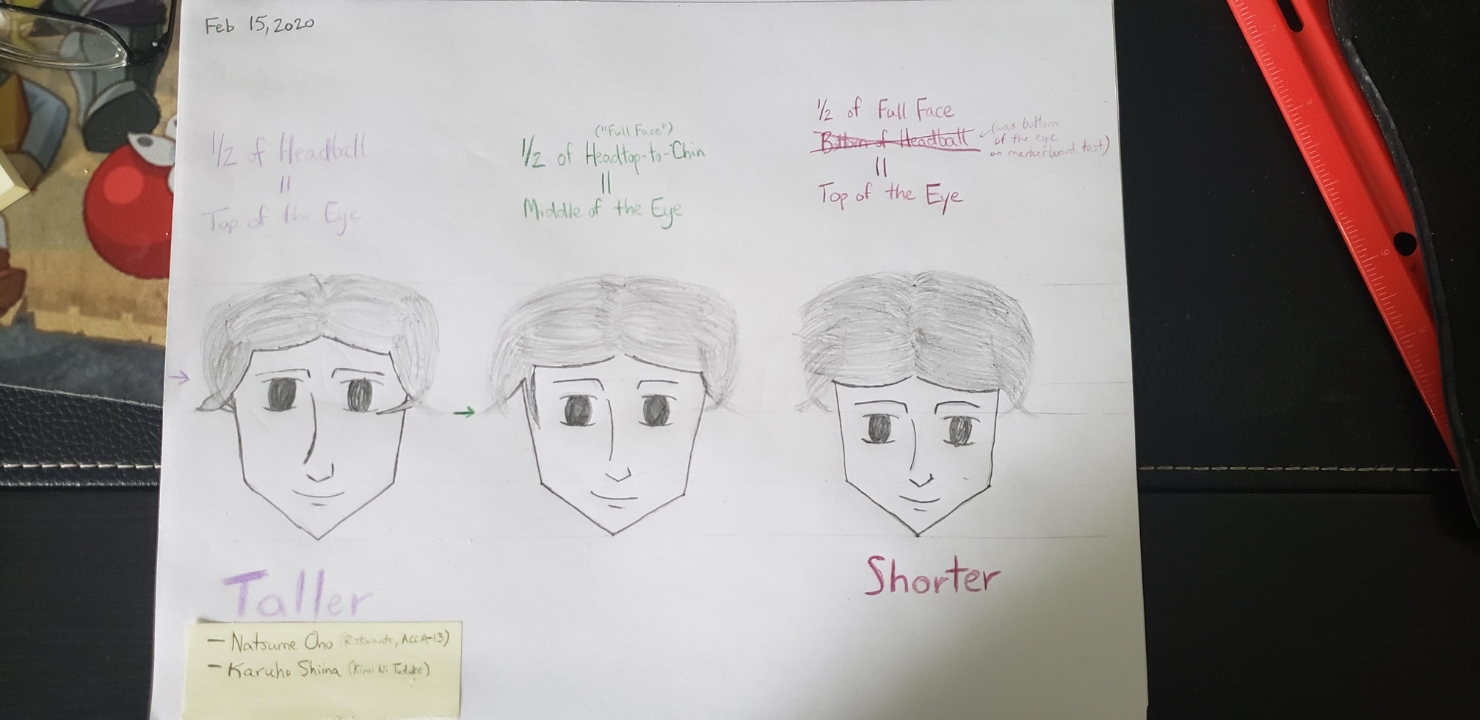 Feb 15, 2020
1/2 of Headball
=
Top of the Eye
("Full Face")
1/2 of Headtop-to-Chin
=
Middle of the Eye
1/2 of Full Face
Bottom of Headball
(was bottom
of the eye
on markerboard test)
=
Top of the Eye
Taller
Shorter
- Natsume Ono (Ristorante, ACCA-13)
- Karuho Shiina (Kimi Ni Todoke)